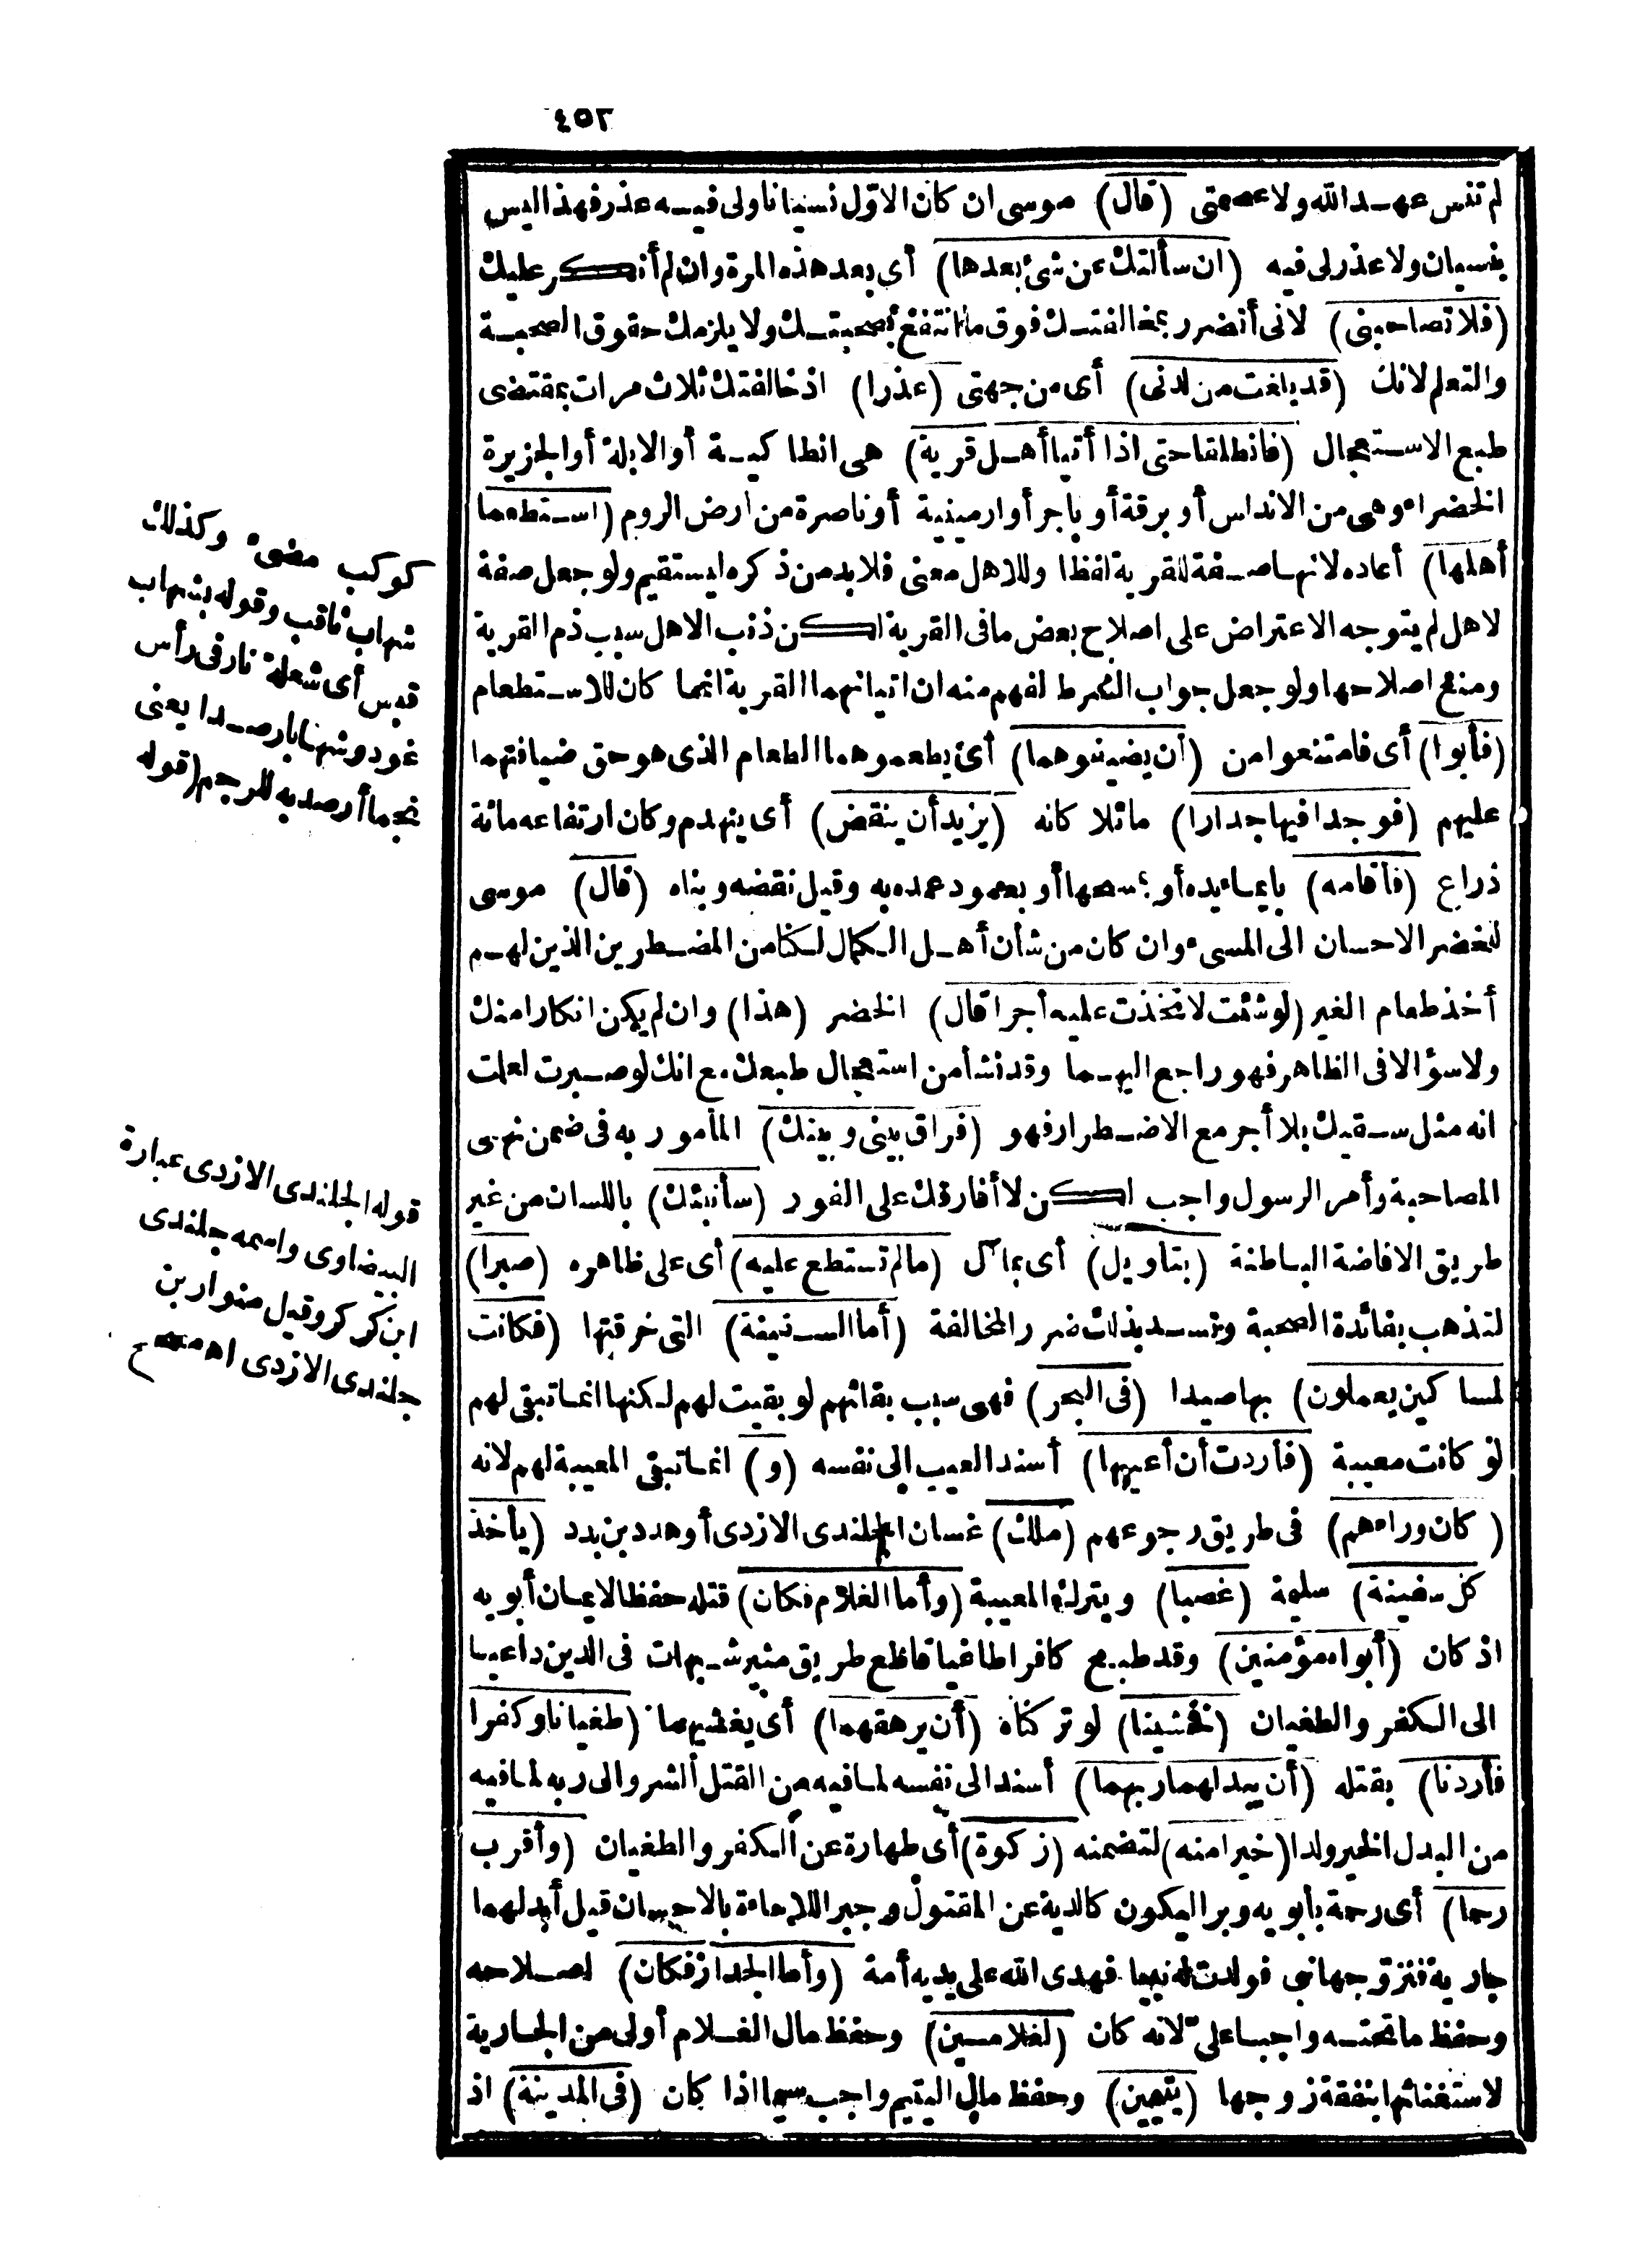 ٤٥٢
لم تنس عهد الله ولا عصمتى (قال) موسى ان كان الاوّل نسيانا ولى فيه عذر فهذا ليس
بنسيان ولا عذر لى فيه (ان سألتك عن شئ بعدها) أى بعد هذه المرة وان لم أنكر عليك
(فلا تصاحبنى) لانى أتضرر بمخالفتك فوق ما انتفع بصحبتك ولا يلزمك حقوق الصحبة
والتعلم لانك (قد بلغت من لدنى) أى من جهتى (عذرا) اذ خالفتك ثلاث مرات بمقتضى
طبع الاستعجال (فانطلقا حتى اذا أتيا أهل قرية) هى انطاكية أو الابلة أو الجزيرة
الخضراء وهى من الاندلس أو برقة أو باجر أو ارمينية أو ناصرة من ارض الروم (استطعما
أهلها) أعاده لانها صفة للقرية لفظا وللاهل معنى فلا بد من ذكره ليستقيم ولو جعل صفة
لاهل لم يتوجه الاعتراض على اصلاح بعض ما فى القرية لكن ذنب الاهل سبب ذم القرية
ومنع اصلاحها ولو جعل جواب الشرط لفهم منه ان اتيانهما القرية انما كان للاستطعام
(فأبوا) أى فامتنعوا من (أن يضيفوهما) أى يطعموهما الطعام الذى هو حق ضيافتهما
عليهم (فوجدا فيها جدارا) مائلا كانه (يريد أن ينقض) أى ينهدم وكان ارتفاعه مائة
ذراع (فأقامه) بايماء يده أو بمسحها أو بعمود عمده به وقيل نقضه وبناه (قال) موسى
للخضر الاحسان الى المسىء وان كان من شأن أهل الكمال لكنا من المضطرين الذين لهم
أخذ طعام الغير (لو شئت لاتخذت عليه أجرا قال) الخضر (هذا) وان لم يكن انكارا منك
ولا سؤالا فى الظاهر فهو راجع اليهما وقد نشأ من استعجال طبعك مع انك لو صبرت لعلمت
انه مثل سقيك بلا أجر مع الاضطرار فهو (فراق بينى وبينك) المأمور به فى ضمن نهى
المصاحبة وأمر الرسول واجب لكن لا أفارقك على الفور (سأنبئك) باللسان من غير
طريق الافاضة الباطنة (بتأويل) أى بمآل (ما لم تستطع عليه) أى على ظاهره (صبرا)
لتذهب بفائدة الصحبة وتسد بذلك ضرر المخالفة (أما السفينة) التى خرقتها (فكانت
لمساكين يعملون) بها صيدا (فى البحر) فهى سبب بقائهم لو بقيت لهم لكنها انما تبقى لهم
لو كانت معيبة (فأردت أن أعيبها) أسند العيب الى نفسه (و) انما تبقى المعيبة لهم لانه
(كان وراءهم) فى طريق رجوعهم (ملك) غسان الجلندى الازدى أو هدد بن بدد (يأخذ
كل سفينة) سليمة (غصبا) ويترك المعيبة (وأما الغلام فكان) قتله حفظا لايمان أبويه
اذ كان (أبواه مؤمنين) وقد طبع كافرا طاغيا قاطع طريق مثير شبهات فى الدين داعيا
الى الكفر والطغيان (فخشينا) لو تركناه (أن يرهقهما) أى يغشيهما (طغيانا وكفرا
فأردنا) بقتله (أن يبدلهما ربهما) أسند الى نفسه لما فيه من القتل الشر والى ربه لما فيه
من البدل الخير ولدا (خيرا منه) لتضمنه (زكوة) أى طهارة عن الكفر والطغيان (وأقرب
رحما) أى رحمة بأبويه وبرا ليكون كالدية عن المقتول وجبرا للاساءة بالاحسان قيل أبدلهما
جارية فتزوجها نبى فولدت له نبيا فهدى الله على يديه أمة (وأما الجدار فكان) لصلاحه
وحفظ ما تحته واجبا علىّ لانه كان (لغلامين) وحفظ مال الغلام أولى من الجارية
لاستغنائها بنفقة زوجها (يتيمين) وحفظ مال اليتيم واجب سيما اذا كان (فى المدينة) اذ
كوكب مضىء وكذلك
شهاب ثاقب وقوله بشهاب
قبس أى شعلة نار فى رأس
عود وشهابا رصدا يعنى
نجما أرصد به للرجم (قوله
قوله الجلندى الازدى عبارة
البيضاوى واسمه جلندى
ابن كركر وقيل منوار بن
جلندى الازدى اه مصحح